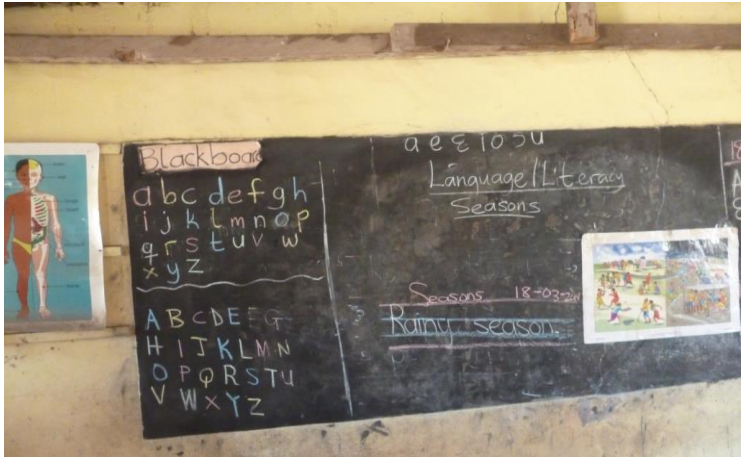 Blackboard
a b c d e f g h
i j k l m n o p
q r s t u v w
x y z
A B C D E F G
H I J K L M N
O P Q R S T U
V W X Y Z
a e ɛ i o ɔ u
Language/Literacy
Seasons
Seasons 18-03-2
Rainy season.